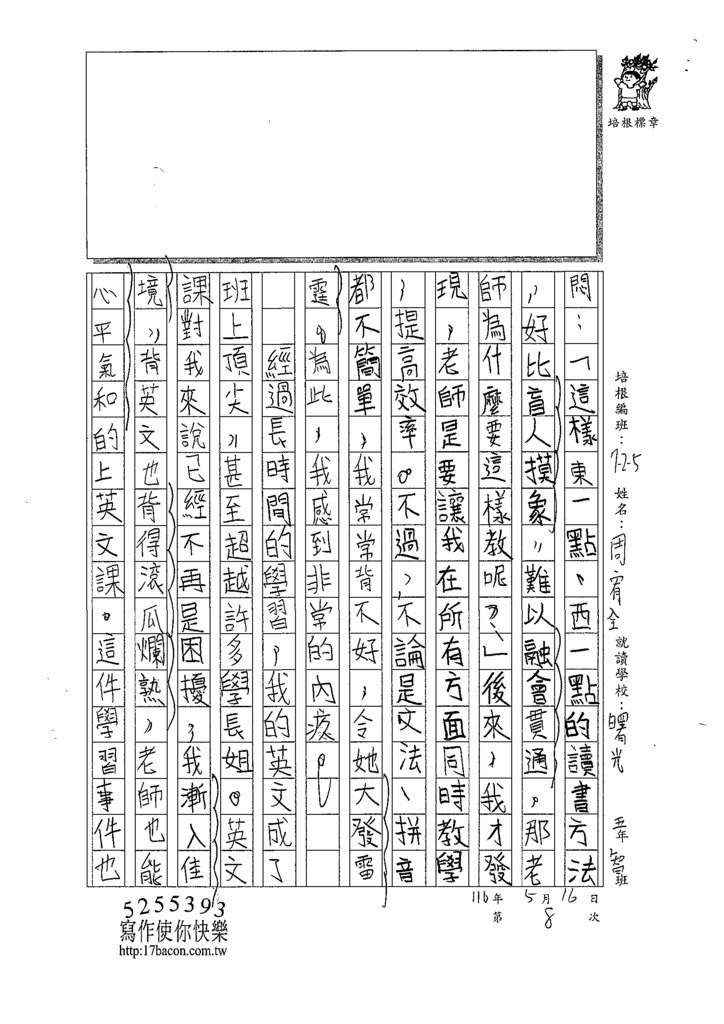 培根標章
培根編班：7-2-5 姓名：周宥全 就讀學校：曙光 五年智班
110年5月16日
第8次
悶：「這樣東一點、西一點的讀書方法
，好比盲人摸象，難以融會貫通，那老
師為什麼要這樣教呢？」後來，我才發
現，老師是要讓我在所有方面同時教學
，提高效率。不過，不論是文法、拼音
都不簡單，我常常背不好，令她大發雷
霆。為此，我感到非常的內疚。
經過長時間的學習，我的英文成了
班上頂尖，甚至超越許多學長姐。英文
課對我來說已經不再是困擾，我漸入佳
境，背英文也背得滾瓜爛熟，老師也能
心平氣和的上英文課。這件學習事件也
5255393
寫作使你快樂
http:17bacon.com.tw